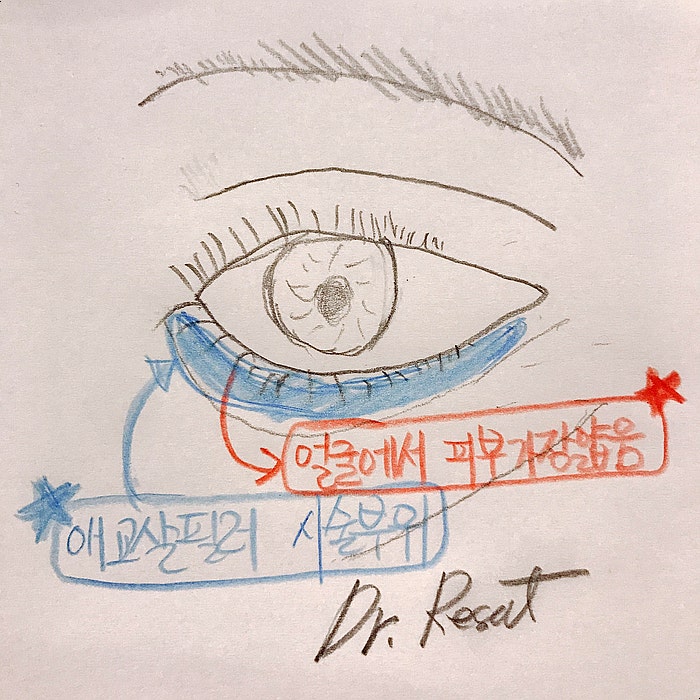 얼굴에서 피부가장얇음
애교살필러 시술부위
Dr. Resat